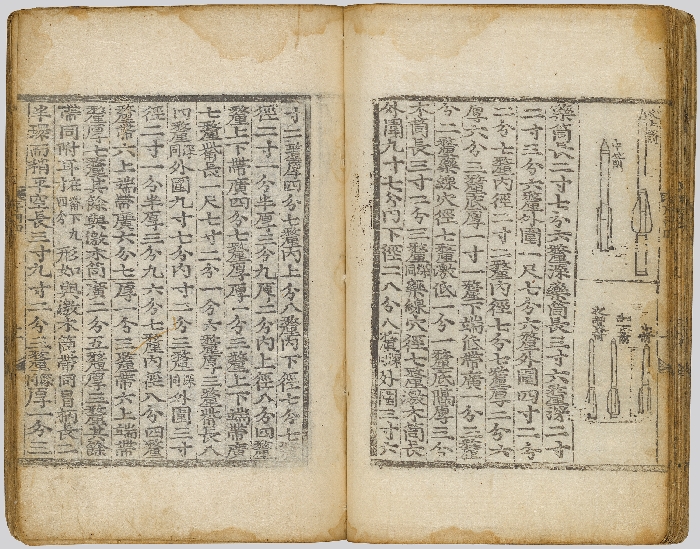 中箭
藥筒長二寸七分六釐深藥筒長三寸六釐深二寸
二寸三分六釐外圍一尺七分六釐外圍四寸二分
二分七釐內徑二寸二釐內徑七分七釐厚二分六
厚六分三釐底厚一寸一釐下端底帶廣一分三釐
分二釐藥線穴徑七釐激低一分一釐底隔厚三分
木筒長三寸二分三釐深同藥線穴徑七釐激木筒長
外圍九寸七分內下徑二八分八釐深外圍三寸六
寸二釐厚四分七釐內上分八釐內下徑七分七
徑二寸一分半厚三分九厚二分內上徑八分四釐
釐上下帶廣四分七釐厚厚一分三釐上下端帶廣
七釐帶長一尺七寸二分一分六釐厚三釐帶長八
四釐深同外圍九寸七分內寸二分三釐深同外圍三寸
徑二寸一分半厚三分九六分七釐內徑八分四釐
釐帶六上端帶廣六分七厚一分三釐帶六上端帶
釐厚七釐其餘與激木筒廣二分五釐厚三釐其餘
帶同附耳於在下九四分形如與激木筒帶同冒柄長一
半深而稍平空長三寸九寸一分三釐隔厚一分二